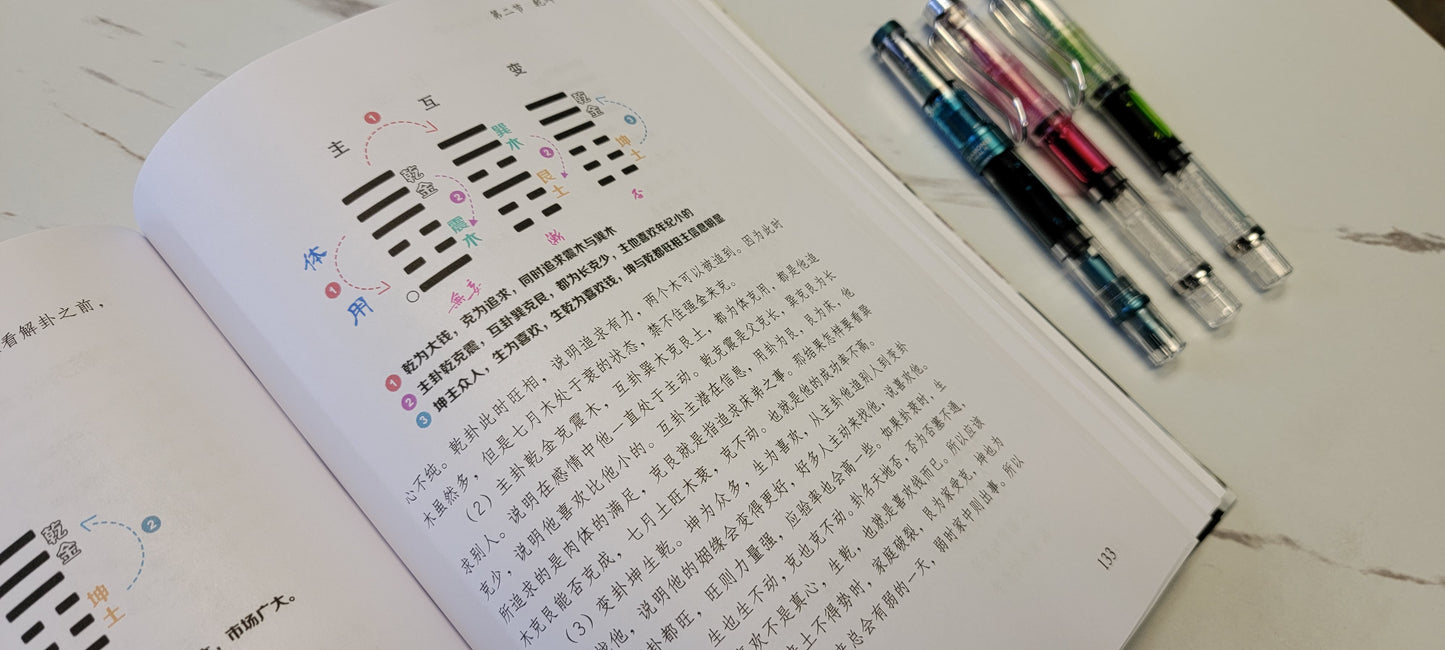 第二节
主 互 变
1
乾金
震木
2
体
1
用
無妄
巽木
艮土
2
漸
乾金
坤土
3
否
1 乾为大钱，克为追求，同时追求震木与巽木
2 主卦乾克震，互卦巽克艮，都为长克少，主他喜欢年纪小的
3 坤主众人，生为喜欢，生乾为喜欢钱，坤与乾都旺相主信息明显
心不纯。乾卦此时旺相，说明追求有力，两个木可以被追到。因为此时
木虽然多，但是七月木处于衰的状态，禁不住强金来克。
（2）主卦乾金克震木，互卦巽木克艮土，都为体克用，都是他追
求别人。说明在感情中他一直处于主动。乾克震是父克长，巽克艮为长
克少，说明他喜欢比他小的。互卦主潜在信息，用卦为艮，艮为床，他
所追求的是肉体的满足，克艮就是指追求床笫之事。那结果怎样要看巽
木克艮能否克成，七月土旺木衰，克不动。也就是他的成功率不高。
（3）变卦坤生乾。坤为众多，生为喜欢，从主卦他追别人到变卦
找他，说明他的姻缘会变得更好，好多人主动来找他，说喜欢他。
卦都旺，旺则力量强，应验率也会高一些。如果卦衰时，生
生也生不动，克也克不动。卦名天地否，否为否塞不通，
欢不是真心，生乾，也就是喜欢钱而已。所以应该
土不得势时，家庭破裂，艮为家受克，坤也为
总会有弱的一天，弱时家中则出事。所以
133
看解卦之前，
乾金
坤土
2
，市场广大。